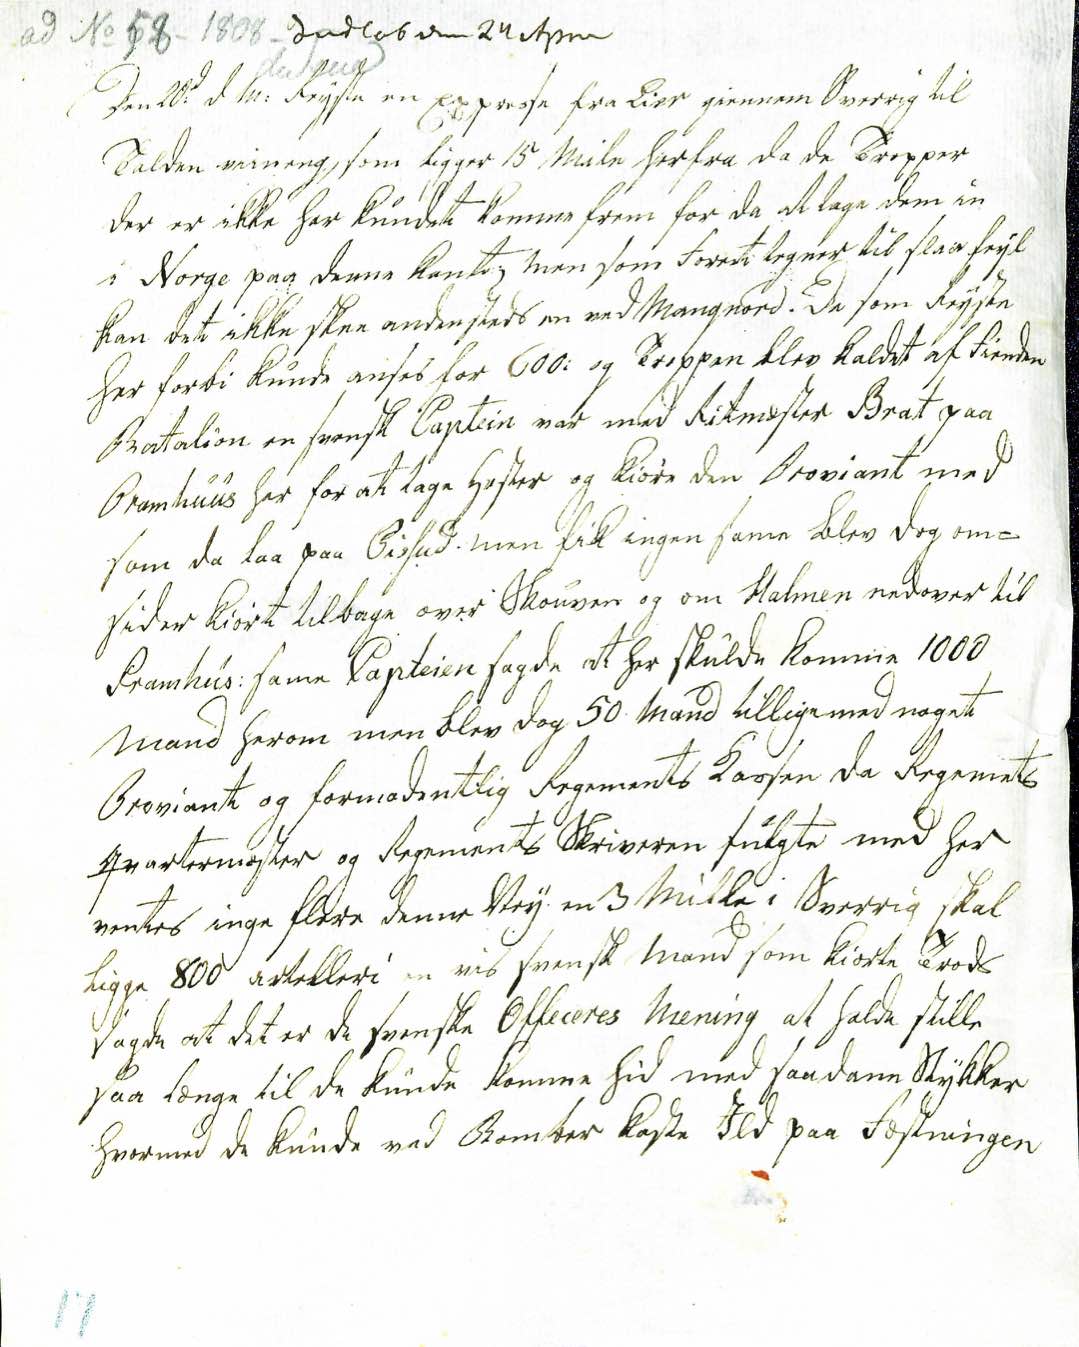 ad No 58 - 1808 - Indlob den 24 April
Den 20d d M: Reyste en Expresse fra Lier giennem Sverrig til
som ligger 15 Mile herfra da de Tropper
der er ikke her kundeti komme frem for da at tage dem in
i Norge paa denne kanti; men som Foreti tegner til slaa feyl
kan deti ikke skee andensteds en ved Mangnord. De som Reyste
her forbi kunde anses for 600: og Troppen blev kaldet af Fienden
Batalion en svensk Captein var med Ritmester Brat paa
her for ati tage Hester og kiøre den Proviant med
som da laa paa men fik ingen same blev dog om=
sider kiørti tilbage over Skouven og om Malmen nedover til
same Capteien sagde at her skulde komme 1000
Mand herom men blev dog 50 Mand tilligemed nogeti
Provianti og formodentlig Regements Kassen da Regemets
Qvartermester og Regements Skriveren fulgte med her
ventes inge flere denne Vey. en 3 Mille i Sverrig skal
ligge 800 artelleri en vis svensk Mand som kiørte Trods
sagde at det er de svenske Officeres Mening at holde stille
saa længe til de kunde komme hid med saadane Stykker
hvormed de kunde ved Bomber kaste Ild paa Festningen
17